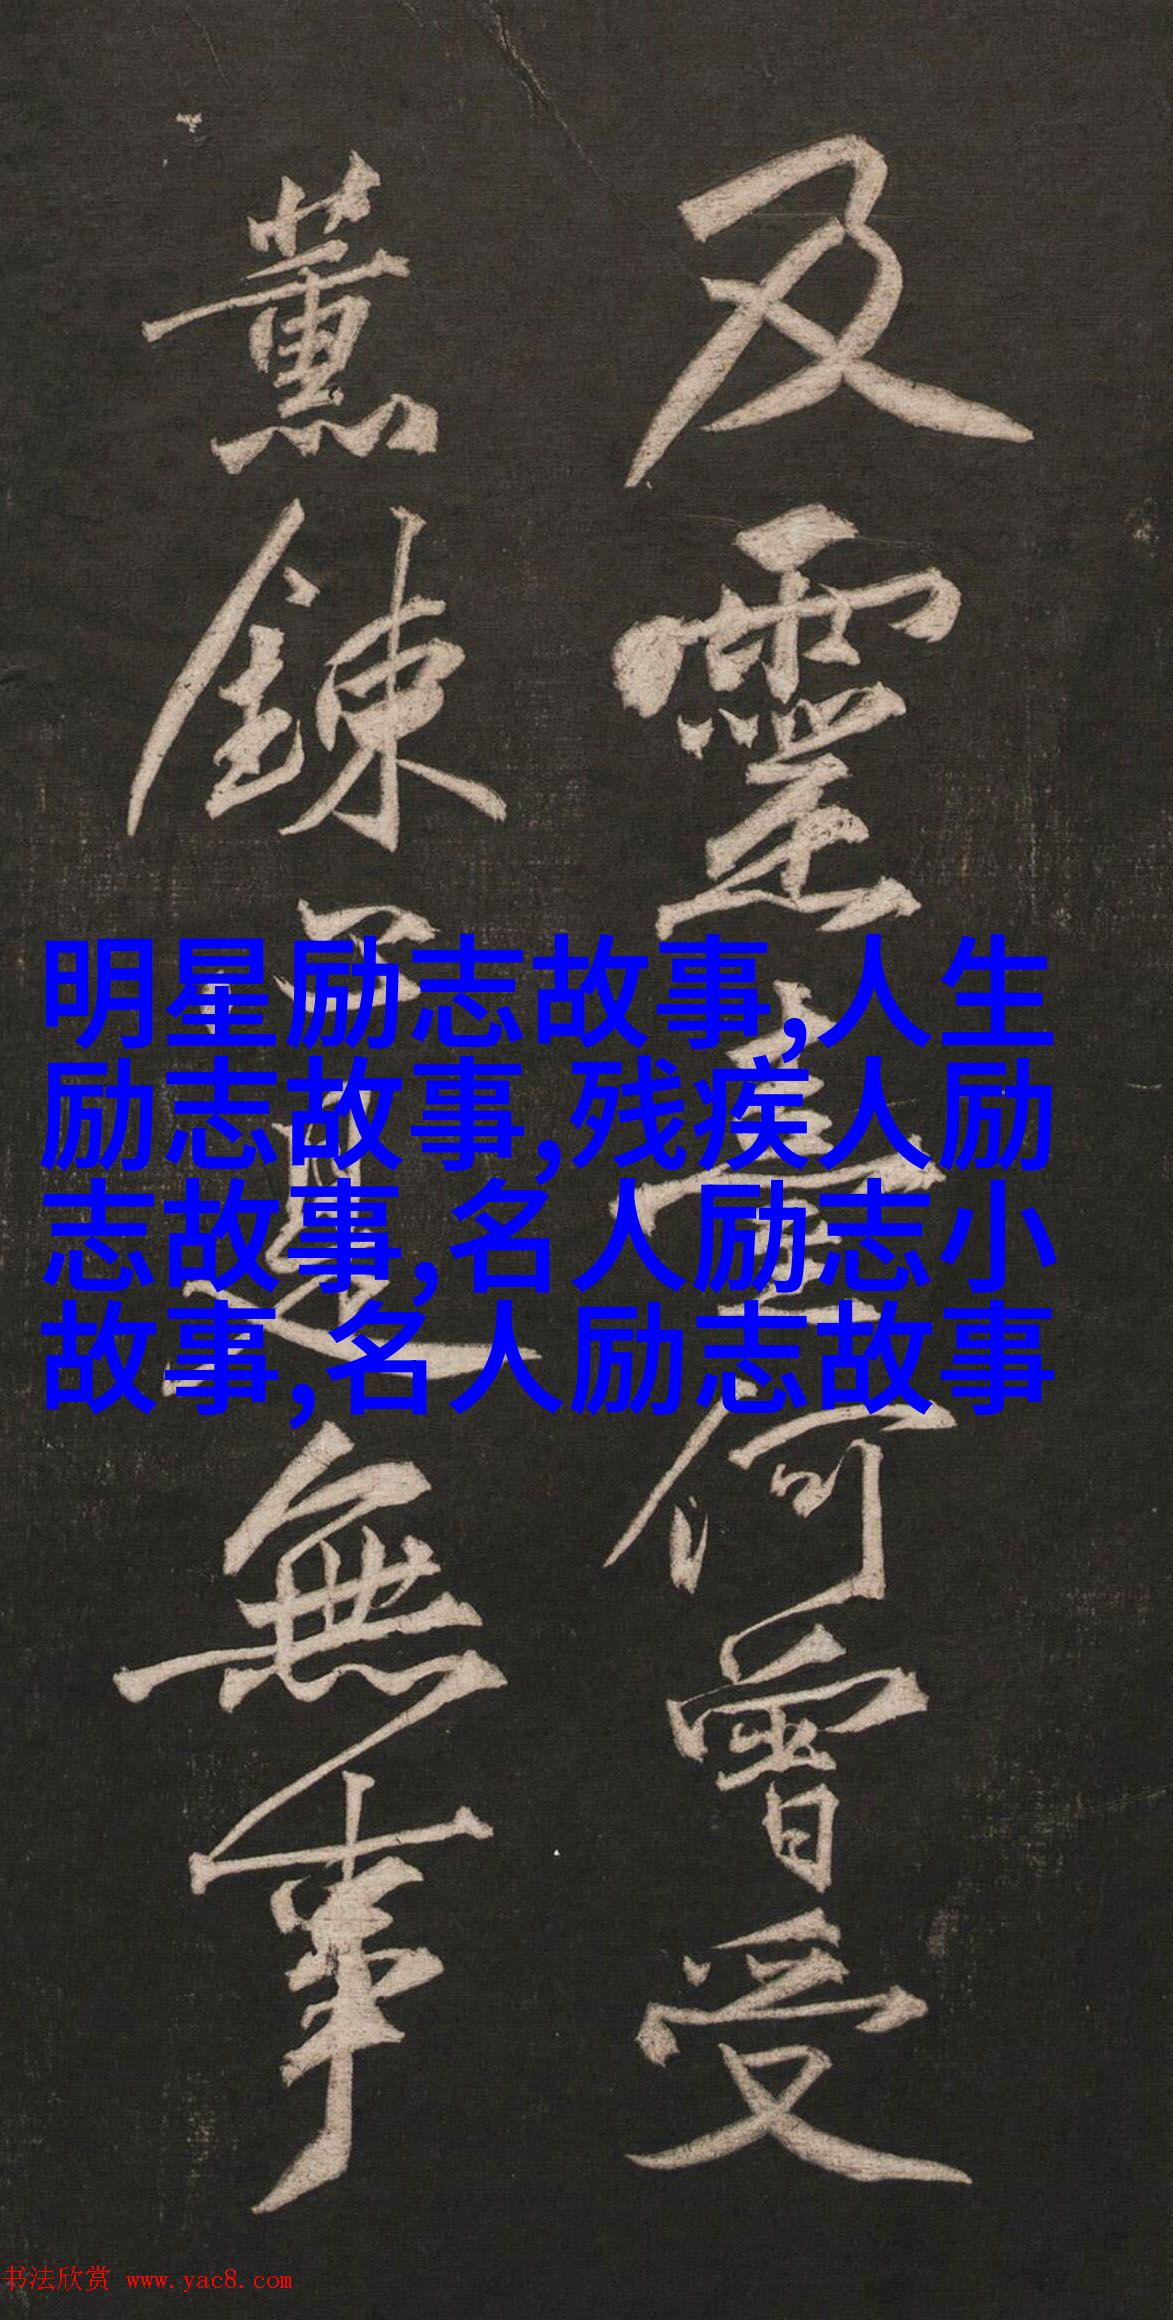 及靈臺何曾受
薰鍊無事
明星励志故事,人生
励志故事,残疾人励
志故事,名人励志小
故事,名人励志故事
书法欣赏 www.yac8.com